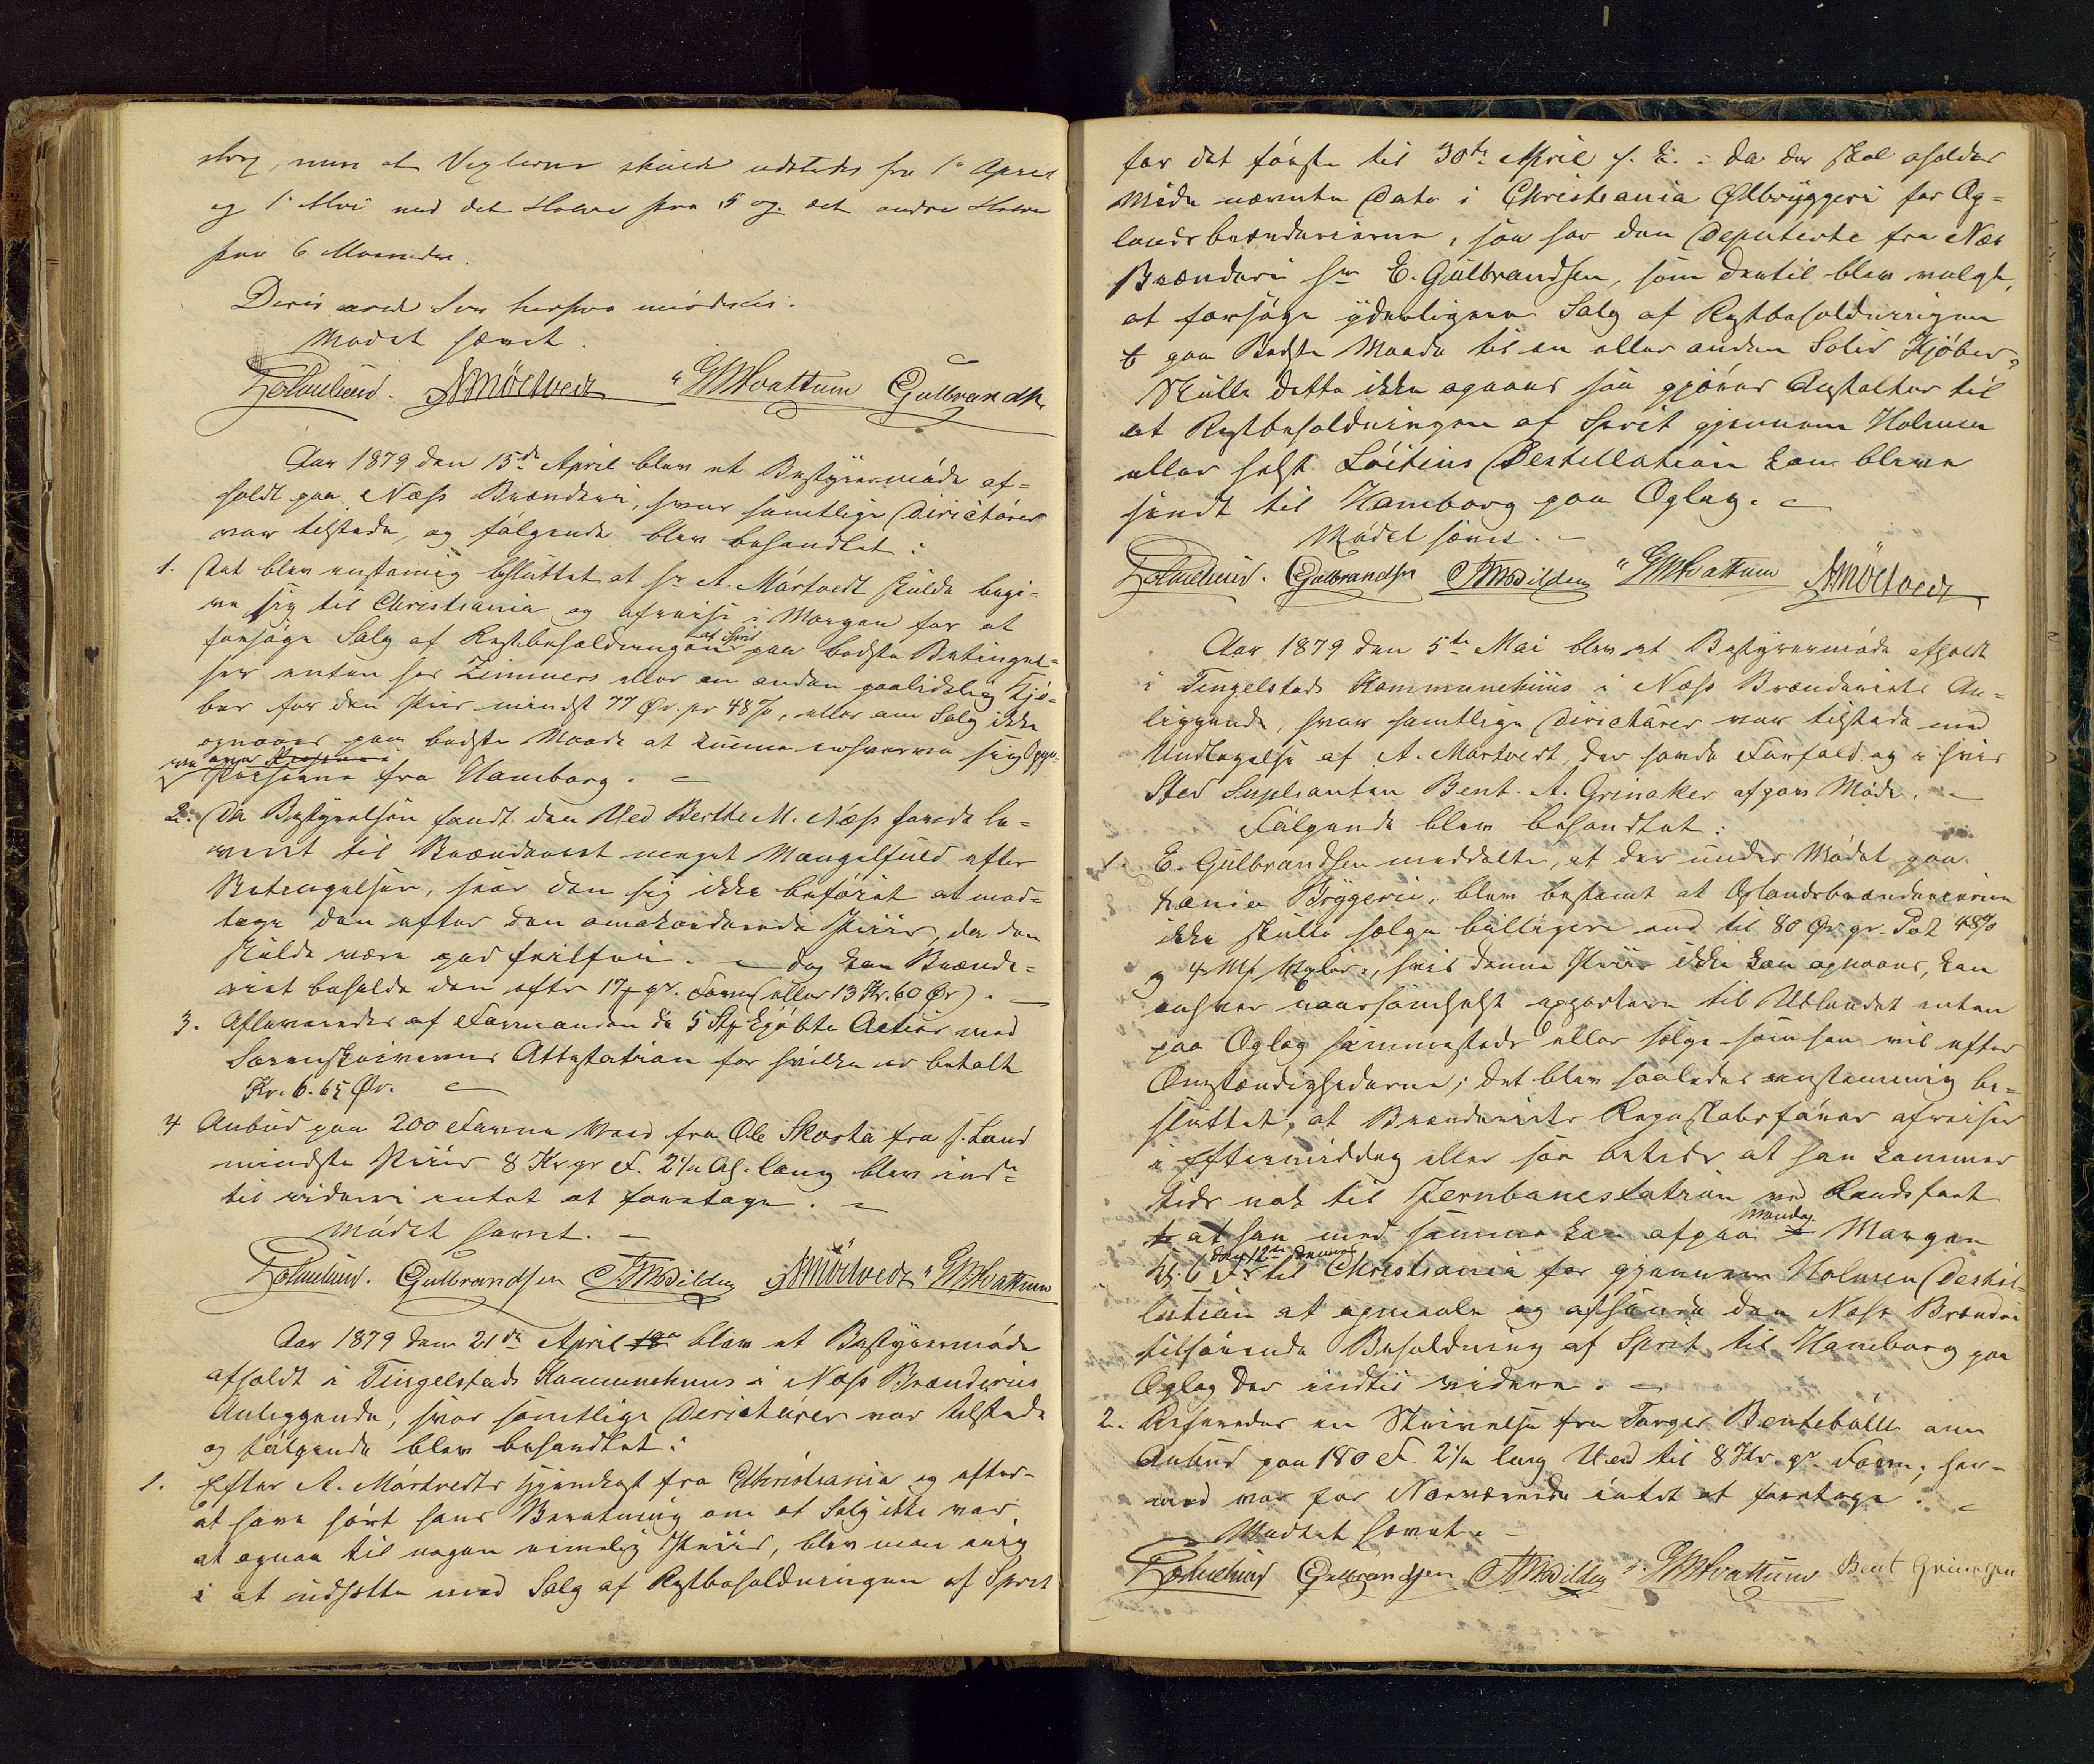 slag, men at Vexlerne skulde udstedes fra 1ste April
og 1ste Mai med det Halve paa 5 og det andre Halve
paa 6 Maaneder.
Mødet hævet.
A. Mørtvedt G. M. Hvattum Gulbrandsen
Aar 1879 den 15de April blev et Bestyrermøde af=
holdt paa Næss Brænderi, hvor samtlige Directører
var tilstede, og følgende blev behandlet:
1. Det blev enstemig besluttet at Hr A. Mørtvedt skulde begi=
ve sig til Christiania og afreise i Morgen for at
forsøge Salg af Restbeholdningen af Sprit paa bedste Betingel=
ser enten hos Zimmers eller en anden paalidelig Kjø=
ber for den Priis mindst 77 Ør. pr 48 %, eller om Salg ikke
opnaaes paa bedste Maade at kunne erhverve sig Opgave
over Priserne fra Hamborg.
2. Da Bestyrelsen fandt den Ved Berthe M. Næss havde le=
veret til Brænderiet meget Mangelfuld efter
Betingelsen, saa den sig ikke beføiet at mod=
tage den efter den omakorderede Priis, da den
skulde være god feilfri. dog kan Brænde=
riet beholde den efter 17 pr. Favn (eller 13 Kr. 60 Ør).
3. Afleveredes af Formanden de 5 Stk kjøbte Actier med
Sorenskriverens Attestation for hvilke er betalt
Kr. 6.65 Ør.
4 Anbud paa 200 Favne Ved fra Ole Skarta fra s. Land
mindste Priis 8 Kr pr F. 2 1/2 Al. lang blev ind=
til videre intet at foretage.
Mødet hævet.
Gulbrandsen A. Mørtvedt G. M. Hvattum
Aar 1879 den 21de April 18 blev et Bestyrermøde
afholdt i Tingelstads Kommunehuus i Næss Brænderies
Anliggende, hvor samtlige Directører var tilstede
og følgende blev behandlet:
1. Efter A. Mørtvedts Hjemkost fra Christiania og efter
at have hørt hans Beretning om at Salg ikke var
at opnaa til nogen rimelig Priis, blev man enig
i at indsætte med Salg af Restbeholdningen af Sprit
for det første til 30te April s. A. da der skal afholdes
Møde nævnte Dato i Christiania Ølbryggeri for Op=
landsbrænderierne, saa har den Deputerte fra Næs
Brænderi Hr E. Gulbrandsen, som dertil blev valgt,
at forsøge yderligere Salg af Restbeholdningen
paa Bedste Maade til en eller anden Solid Kjøber,
Skulle dette ikke opnaaes saa gjøres Anstalter til
at Restbeholdningen af Sprit gjennem Holmen
eller helst Løitens Destillation kan blive
sendt til Hamborg paa Oplag.
Mødet hævet.
Gulbrandsen G. M. Hvattum A. Mørtvedt
Aar 1879 den 5te Mai blev et Bestyrermøde afholdt
i Tingelstads Kommunehuus i Næss Brænderiets An=
liggende, hvor samtlige Directører var tilstede med
Undtagelse af A. Mørtvedt, der havde Forfald og i hvis
Sted Suplianten Bent. A. Grinaker afgav Møde.
Følgende blev behandlet:
1. E. Gulbrandsen meddelte, at der under Mødet paa
Xania Bryggeri, blev bestemt at Oplandsbrænderierne
ikke skulle sælge billigere end til 80 Ør pr. Pot 48%
og 4 Mds Vexler, hvis denne Priis ikke kan opnaaes, kan
enhver naarsomhelst exportere til Utlandet enten
paa Oplag hjemmesteds eller sælge som han vil efter
Omstændighederne; det blev saaledes enstemmig be=
sluttet, at Brænderiets Regnskabsfører afreiser
i Eftermiddag eller saa betids at han kommer
tids nok til Jernbanestation ved Randsfjord
at han med samme kan afgaa Mandag Morgen
Kl. 6 den 12te dennes til Christiania for gjennem Holmen Destil=
lation at opmaale og afsende den Næss Brænderi
tilhørende Beholdning af Sprit til Hamborg paa
Oplag der indtil videre.
2. Refereredes en Skrivelse fra Torger Bentebølle om
Anbud paa 180 F. 2 1/2 lang Ved til 8 Kr. pr. Favn; her=
med var for Nærværende intet at foretage.
Mødet hævet.
Gulbrandsen G. M. Hvattum Bent Grinager